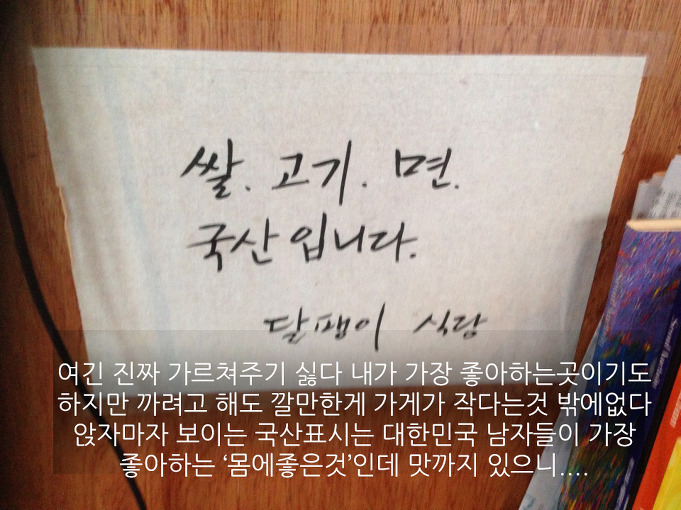 쌀. 고기. 면.
국산입니다.
달팽이 식당
여긴 진짜 가르쳐주기 싫다 내가 가장 좋아하는곳이기도
하지만 까려고 해도 깔만한게 가게가 작다는것 밖에없다
앉자마자 보이는 국산표시는 대한민국 남자들이 가장
좋아하는 ‘몸에좋은것’인데 맛까지 있으니....